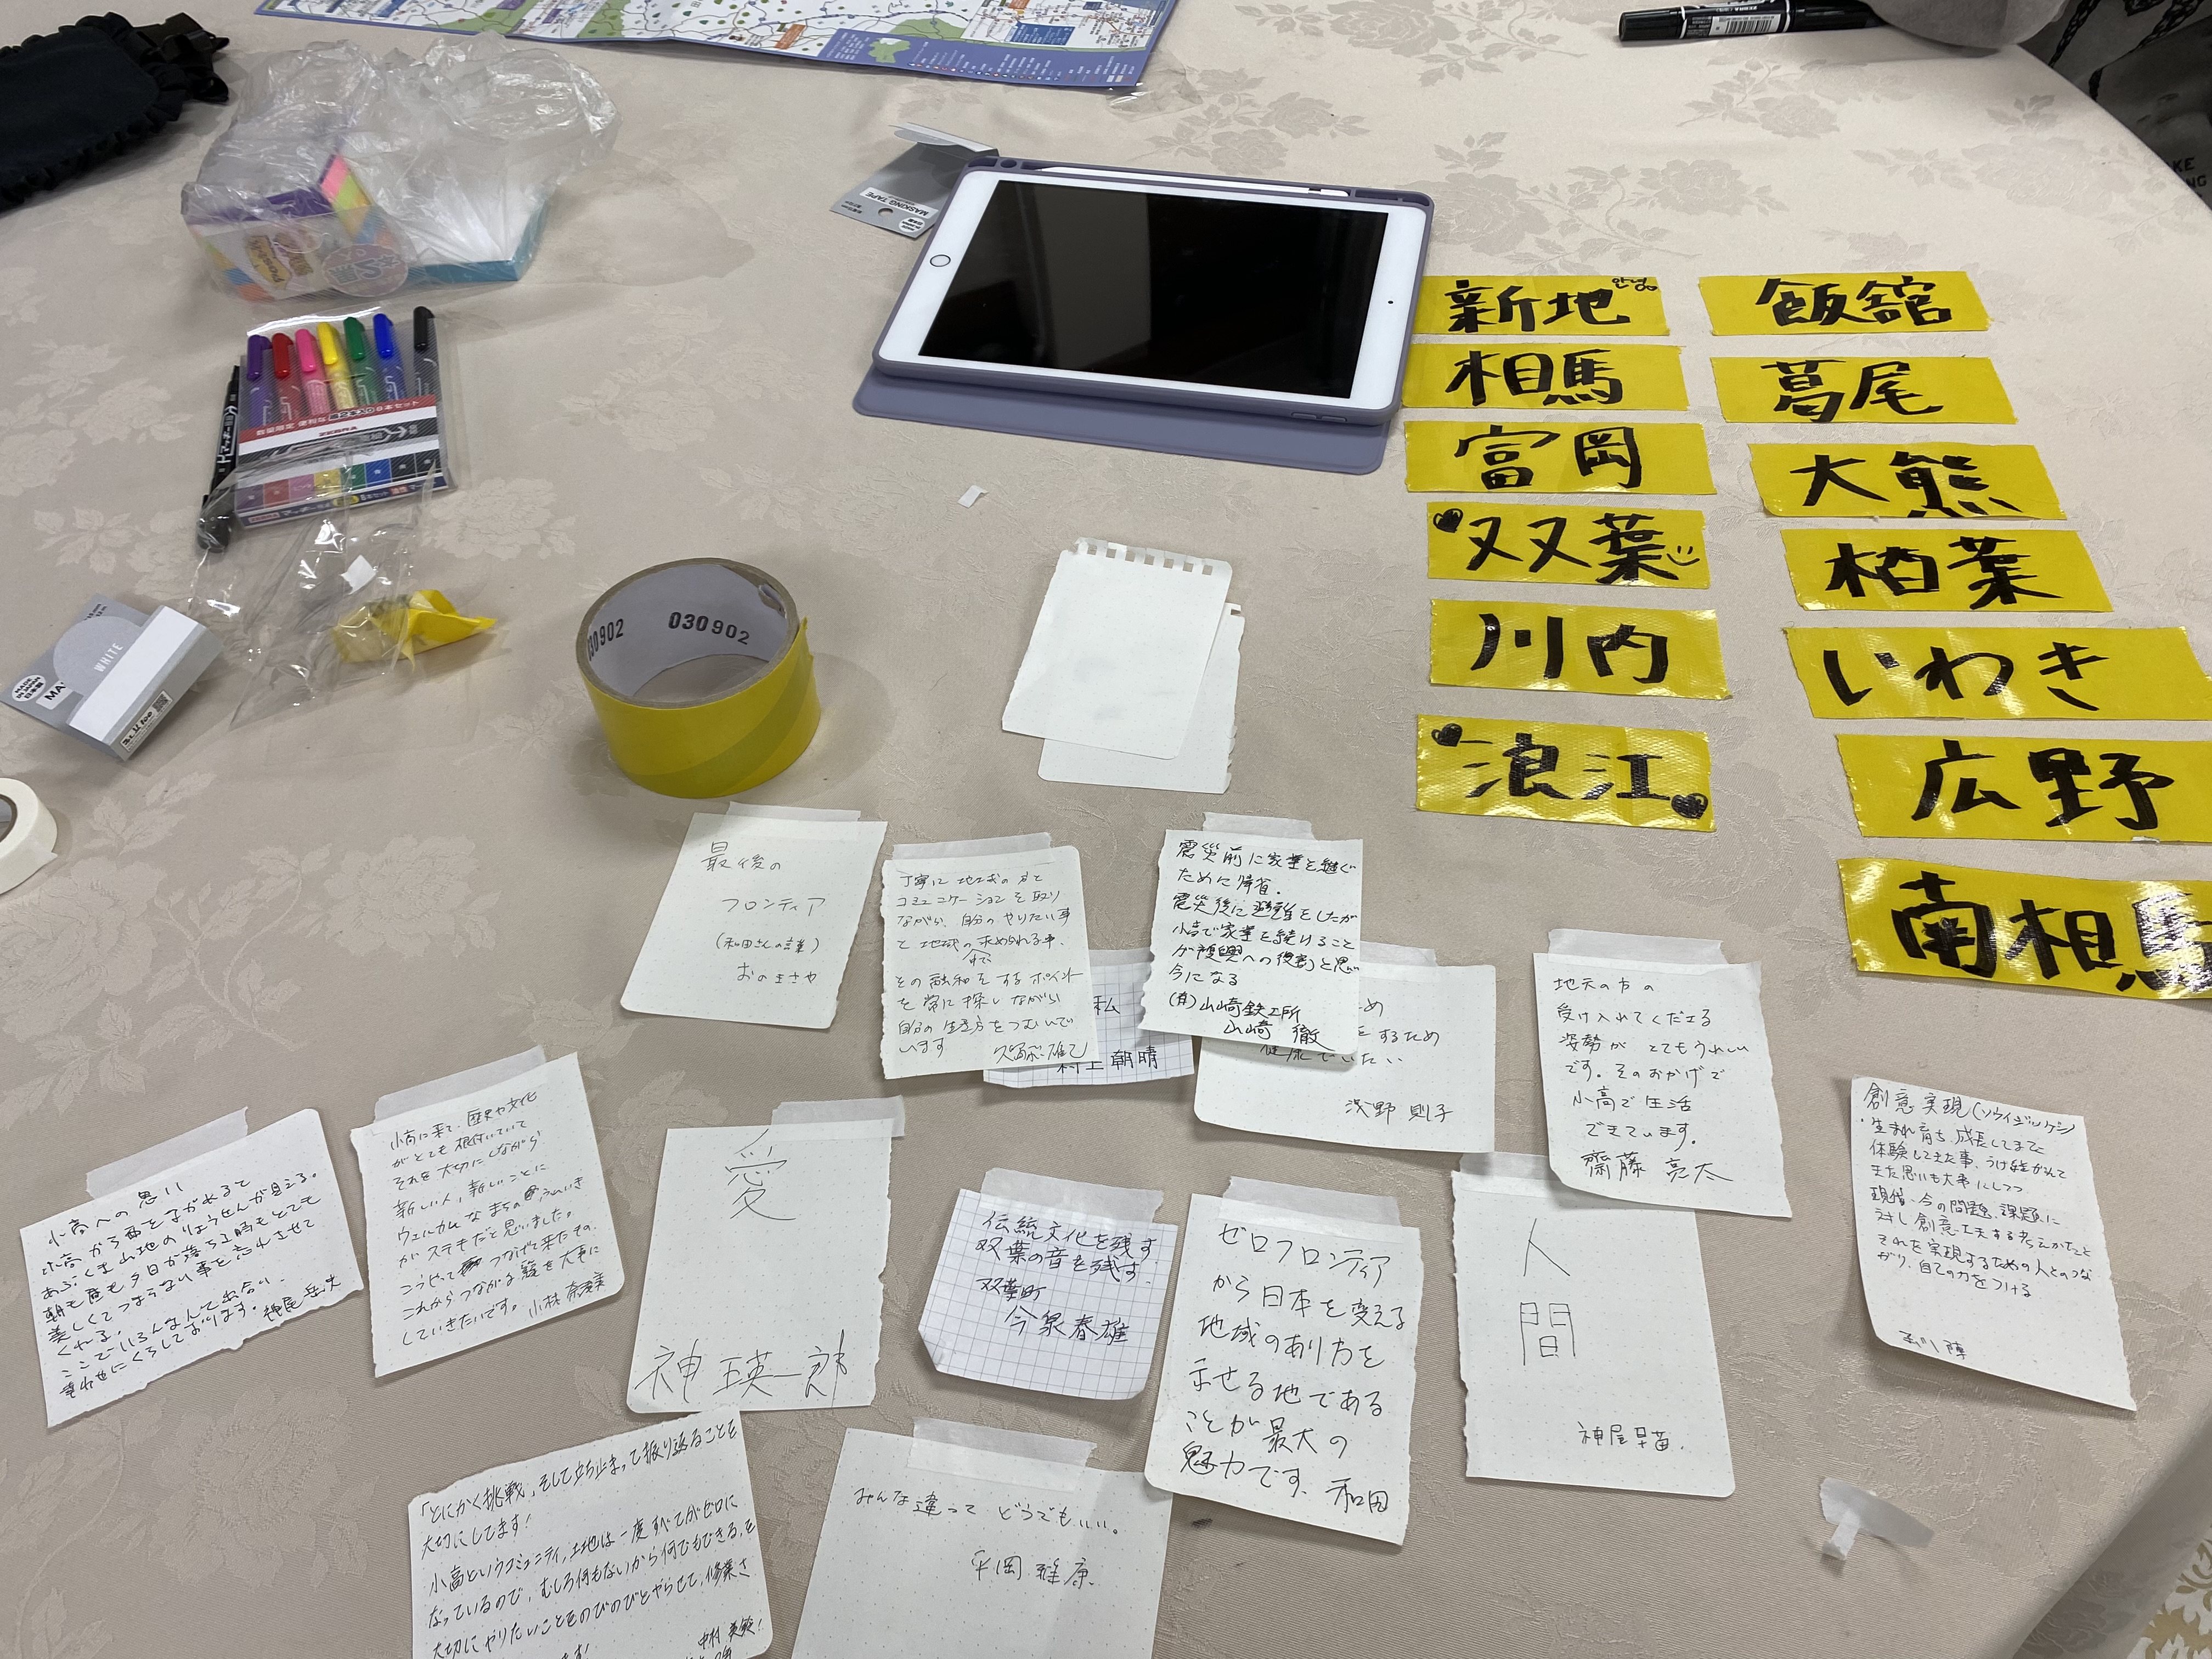 MASKING TAPE
新地
안녕
相馬
富岡
双双葉
川内
浪江
飯舘
葛尾
大熊
楢葉
いわき
広野
南相馬
ZEBRA
WHITE
030902
030902
最後の
フロンティア
(和田さんの言葉)
おのまさや
丁寧に地域の方と
コミュニケーションを取り
ながら、自分のやりたい事
と地域の求められる事、
その融和をするポイント
を常に探しながら
自分の生き方をつむいで
います
震災前に家業を継ぐ
ために帰省.
震災後に避難をしたが
小高で家業を続けること
が復興への役割と思い
今になる
(有)山崎鉄工所
山崎 徹
私
村上朝晴
め
をするため
健康でいたい
浅野 則子
地元の方の
受け入れてくださる
姿勢がとてもうれしい
です。そのおかげで
小高で生活
できています。
齋藤 亮太
創意実現(ソウイジツゲン)
・生れ育ち、成長してまでに
体験してきた事、うけ継がれて
きた思いも大事にしつつ
現借、今の問題、課題に
対し創意工夫する考えかたと
それを実現するための人とのつな
がり、自己の力をつける
小高への思い
小高から西をながめると
あぶくま山地のりょうせんが見える。
朝も昼も夕日が落ちる時もとても
美しくてつまらない事を忘れさせて
くれる。
ここでいろんな人で出合い、
幸わせにくらしております。神尾
小高に来て、歴史や文化
がとても根付いていて
それを大切にしながら
新しい人、新しいことに
ウェルカムなまちのふんいき
がステキだと思いました。
こうやってつなげて来たもの、
これからつながる縁を大事に
していきたいです。小林 奈穂美
愛
神 英一郎
伝統文化を残す
双葉の音を残す.
双葉町
今泉春雄
ゼロフロンティア
から日本を変える
地域のあり方を
示せる地である
ことが最大の
魅力です. 和田
人
間
神尾早苗.
「とにかく挑戦」、そして立ち止まって振り返ることを
大切にしてます!
小高というコミュニティ、土地は一度すべてがゼロに
なっているので、むしろ何もないから何でもできる、を
大切にやりたいことをのびのびとやらせて、修業さ
みんな違って どうでもいい。
平岡 雅康